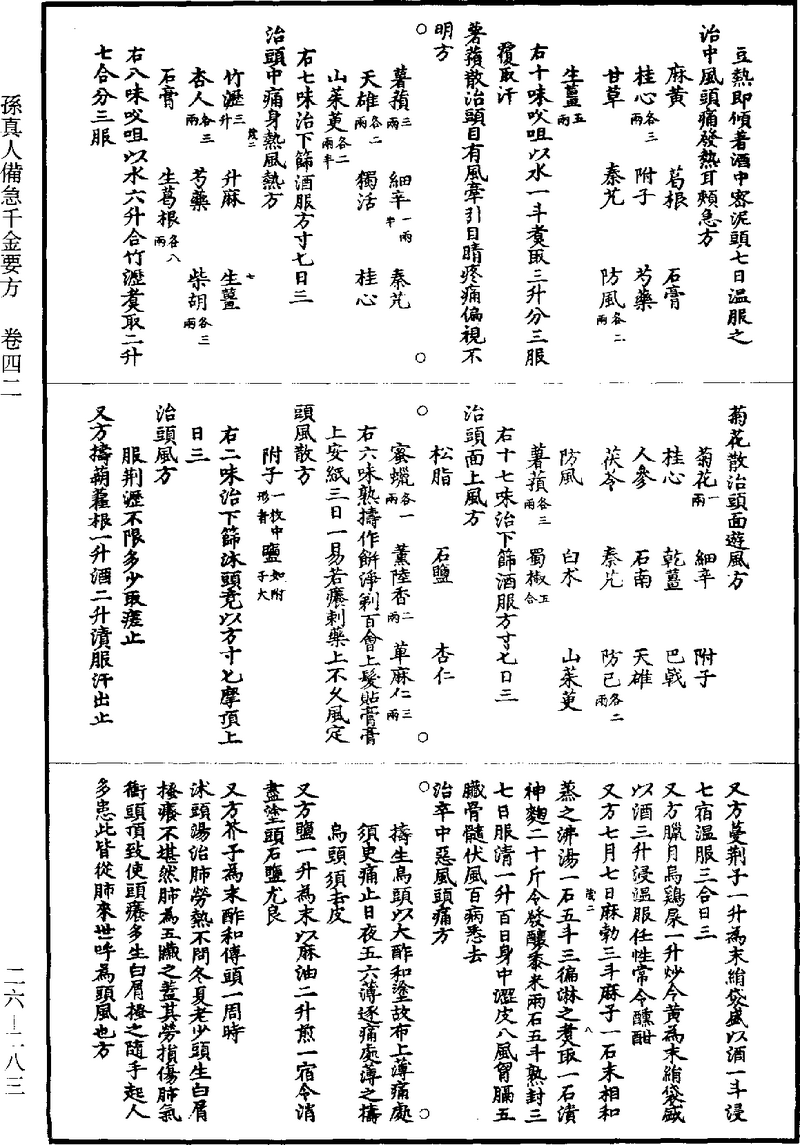 孫真人備急千金要方　卷四二
豆熱即傾著酒中密泥頭七日溫服之
治中風頭痛發熱耳頰急方
麻黃　葛根　石膏
桂心各三兩　附子　芍藥
甘草　秦艽　防風各二兩
生薑五兩
右十味㕮咀以水一斗煑取三升分三服
覆取汗
薯蕷散治頭目有風牽引目睛疼痛偏視不
明方
薯蕷三兩　細辛一兩半　秦艽
天雄各二兩　獨活　桂心
山茱萸各二兩半
右七味治下篩酒服方寸匕日三
治頭中痛身熱風熱方
竹瀝三升　升麻　生薑
杏人各三兩　芍藥　柴胡各三兩
石膏　生葛根各八兩
右八味㕮咀以水六升合竹瀝煑取二升
七合分三服
菊花散治頭面遊風方
菊花一兩　細辛　附子
桂心　乾薑　巴戟
人參　石南　天雄
茯苓　秦艽　防己各二兩
防風　白术　山茱萸
薯蕷各三兩　蜀椒五合
右十七味治下篩酒服方寸匕日三
治頭面上風方
松脂　石鹽　杏仁
蜜蠟各一兩　薰陸香二兩　萆麻仁三兩
右六味熟擣作餅淨剃百會上髮貼膏膏
上安紙三日一易若癢刺藥上不久風定
頭風散方
附子一枚中形者　鹽如附子大
右二味治下篩沐頭竟以方寸匕摩頂上
日三
治頭風方
服荊瀝不限多少取瘥止
又方擣葫蘿根一升酒二升漬服汗出止
又方蔓荊子一升為末絹袋盛以酒一斗浸
七宿溫服三合日三
又方臘月烏鷄屎一升炒令黃為末絹袋盛
以酒三升浸溫服任性常令醺酣
又方七月七日麻勃三斗麻子一石末相和
蒸之沸湯一石五斗三徧淋之煑取一石漬
神麴二十斤令發釀黍米兩石五斗熟封三
七日服清一升百日身中澀皮八風胷膈五
臟骨髓伏風百病悉去
治卒中惡風頭痛方
擣生烏頭以大酢和塗故布上薄痛處
須臾痛止日夜五六薄逐痛處薄之擣
烏頭須去皮
又方鹽一升為末以麻油二升煎一宿令消
盡塗頭石鹽尤良
又方芥子為末酢和傅頭一周時
沐頭湯治肺勞熱不問冬夏老少頭生白屑
搔癢不堪然肺為五臟之蓋其勞損傷肺氣
衝頭頂致使頭癢多生白屑搔之隨手起人
多患此皆從肺來世呼為頭風也方
二六—一八三